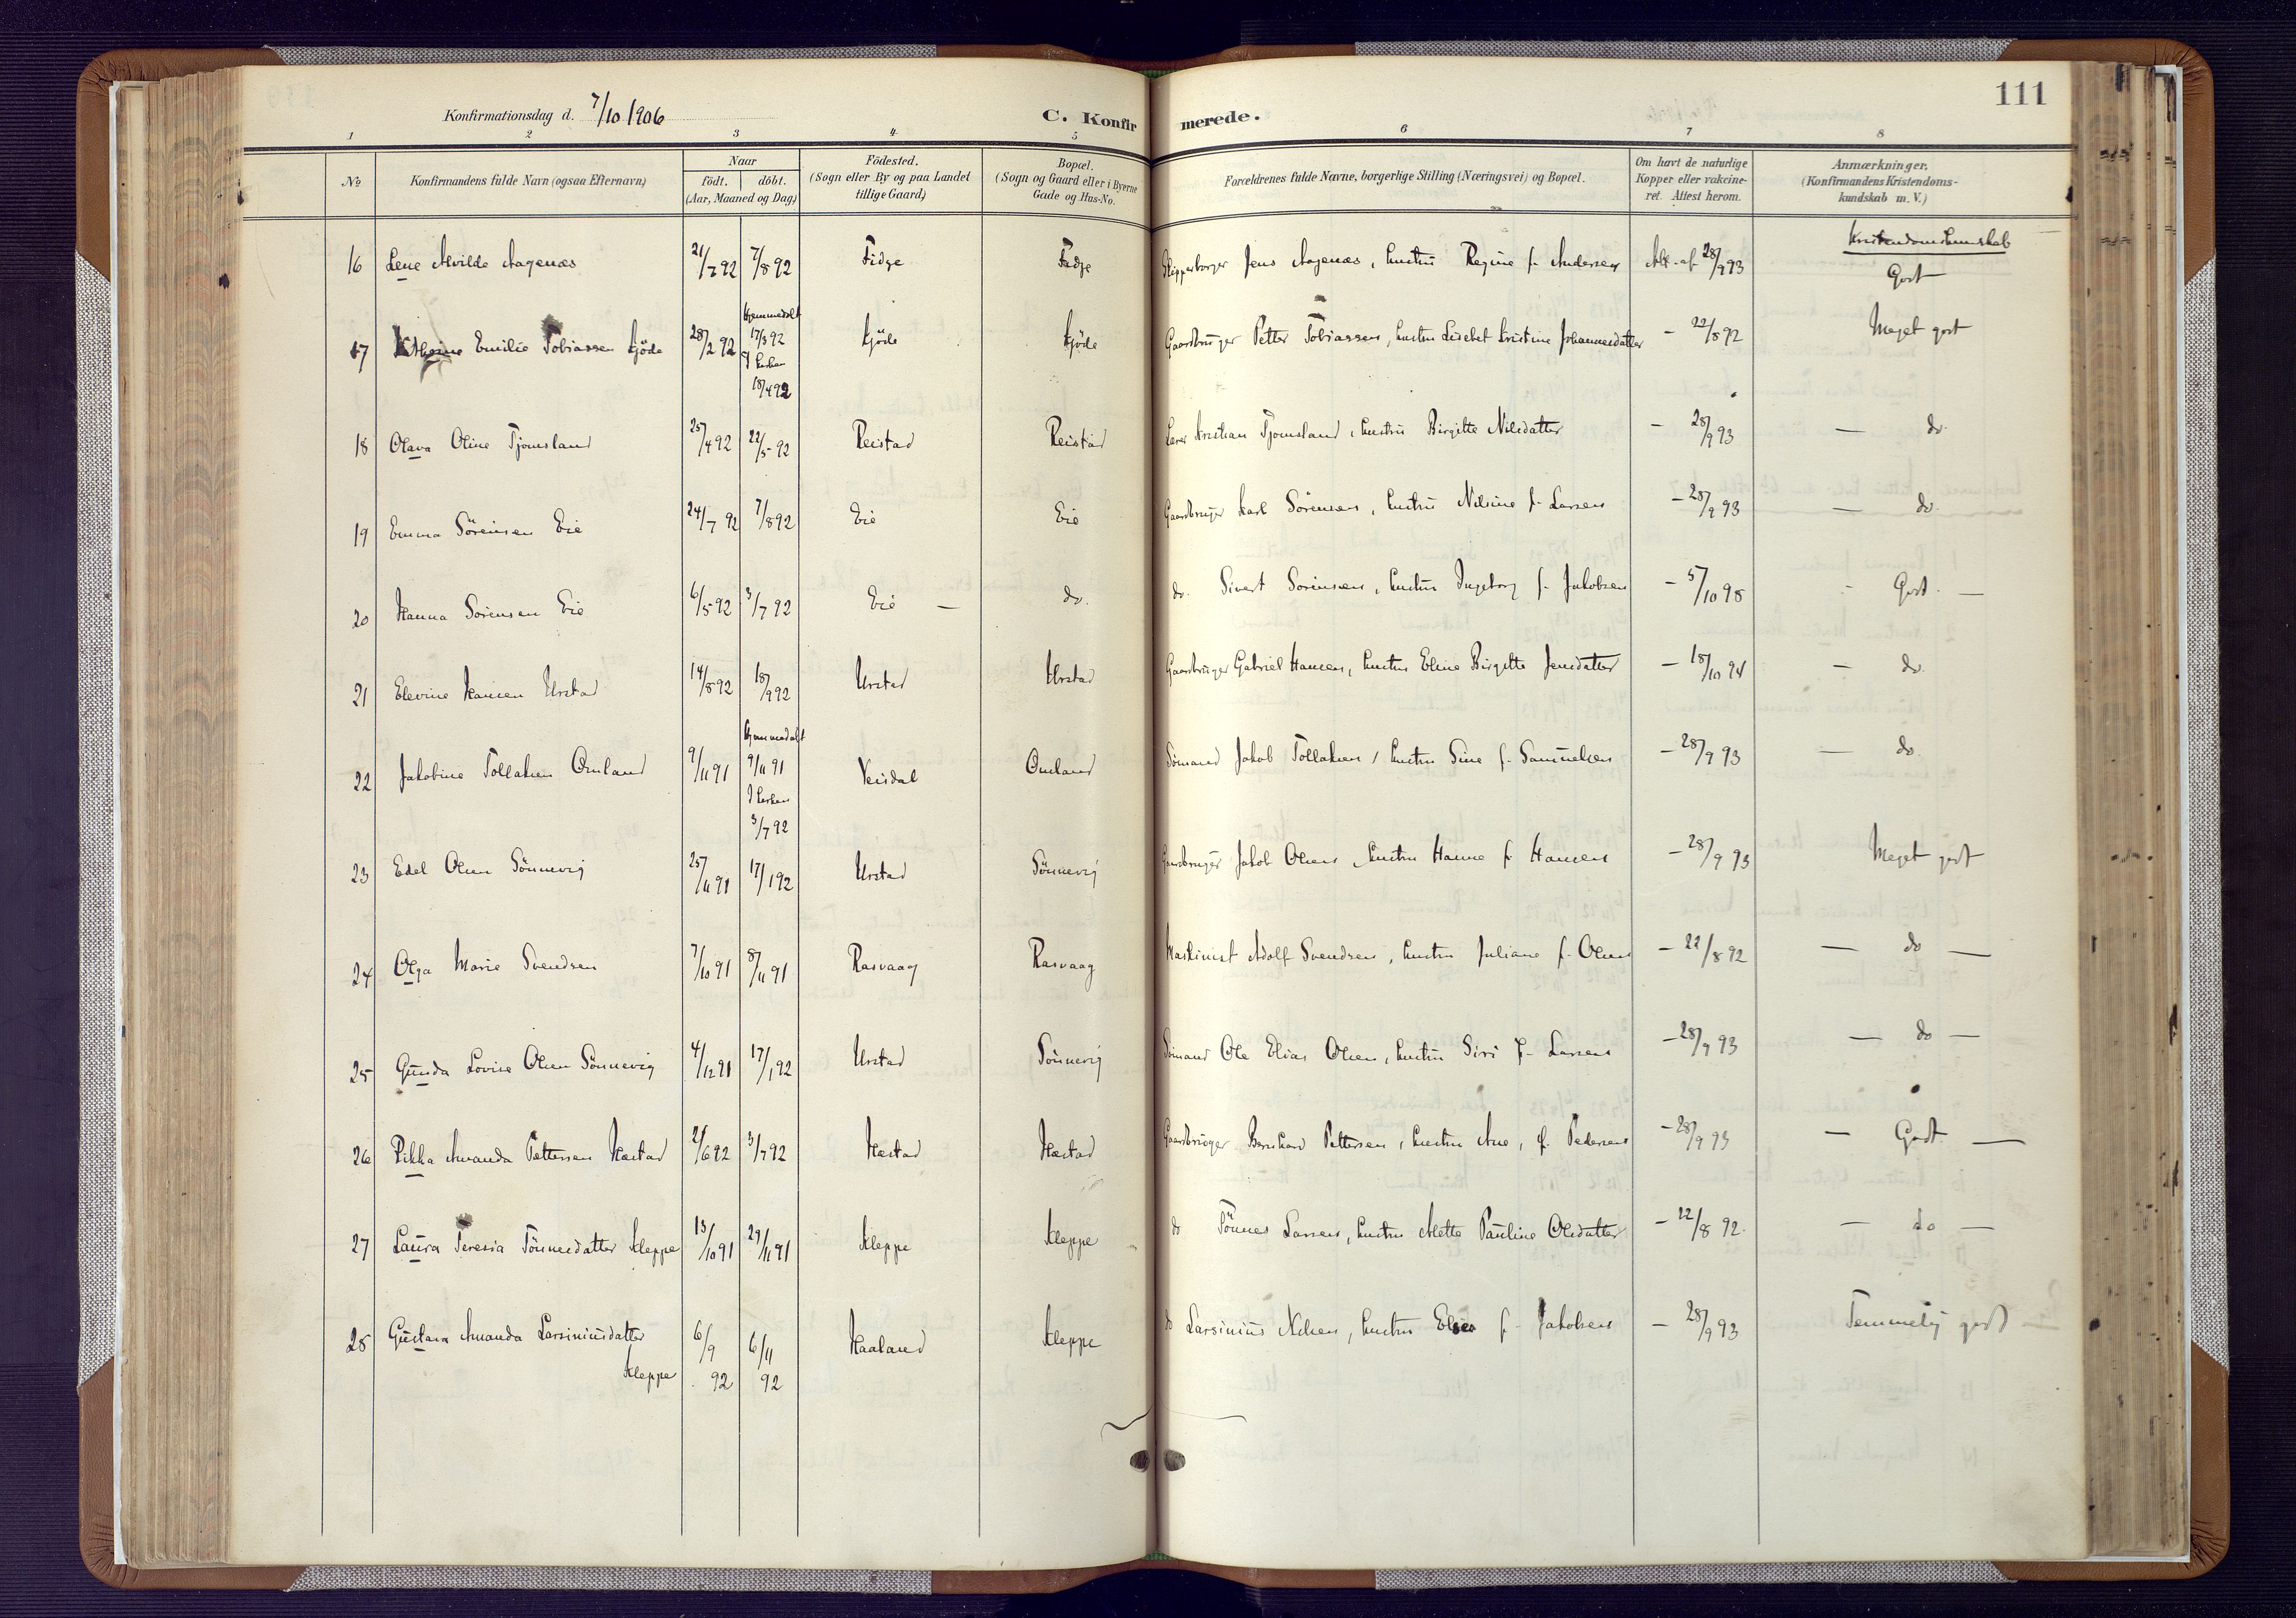 111
Konfirmationsdag d. 7/10 1906
C. Konfirmerede.
1 2 3 4 5 6 7 8
No
Konfirmandens fulde Navn (ogsaa Efternavn)
Naar
födt. döbt.
(Aar, Maaned og Dag)
Födested.
(Sogn eller By og paa Landet
tillige Gaard)
Bopæl.
(Sogn og Gaard eller i Byerne
Gade og Hus-No.
Forældrenes fulde Navne, borgerlige Stilling (Næringsvei) og Bopæl.
Om havt de naturlige
Kopper eller vakcine-
ret. Attest herom.
Anmærkninger,
(Konfirmandens Kristendoms-
kundskab m. V.)
Kristendomskunskab
16 Lene Alvilde Aagenæs 21/7 92 7/8 92 Fidge Fidge Skipperborger Jens Aagenæs, hustru Regine f. Andersen Att. af 28/9 93 Godt
Hjemmedøbt
17 Emilie Tobiassen Kjöde 28/2 92 17/3 92 Kjöde Kjöde Gaardbruger Petter Tobiassen, hustru Lisebet Kristine Johannesdatter - 22/8 92 Meget godt
I kirken
18/4 92
18 Olava Oline Tjomsland 25/4 92 22/5 92 Reistad Reistad Lærer Kristian Tjomsland, hustru Birgitte Nilsdatter - 28/9 93 — do.
19 Emma Sörensen Eie 24/7 92 7/8 92 Eie Eie Gaardbruger Karl Sörensen, hustru Nilsine f. Larsen - 28/9 93 — do.
20 Hanna Sörensen Eie 6/5 92 3/7 92 Eie — do. do. Sivert Sörensen, hustru Ingeborg f. Jakobsen - 5/10 98 - Godt. —
21 Elevine Hansen Urstad 14/8 92 18/9 92 Urstad Urstad Gaardbruger Gabriel Hansen, hustru Eline Birgitte Jensdatter - 18/10 94 — do.
Hjemmedøbt
22 Jakobine Tollaksen Omland 9/11 91 9/11 91 Veisdal Omland Sömand Jakob Tollaksen, hustru Sine f. Samuelsen - 28/9 93 — do.
I kirken
3/7 92
23 Edel Olsen Sönnevig 25/11 91 17/1 92 Urstad Sönnevig Gaardbruger Jakob Olsen, hustru Hanne f. Hansen - 28/9 93 Meget godt
24 Olga Marie Svendsen 7/10 91 8/11 91 Rasvaag Rasvaag Maskinist Adolf Svendsen, hustru Juliane f. Olsen - 22/8 92 — do —
25 Gunda Lovise Olsen Sönnevig 4/12 91 17/1 92 Urstad Sönnevig Sömand Ole Elias Olsen, hustru Siri f. Larsen - 28/9 93 — do —
26 Rikka Amanda Pettersen Hæstad 2/6 92 3/7 92 Hæstad Hæstad Gaardbruger Bernhard Pettersen, hustru Ane, f. Pedersen - 28/9 93 — Godt. —
27 Laura Teresia Tönnesdatter Kleppe 13/10 91 29/11 91 Kleppe Kleppe do Tönnes Larsen, hustru Mette Pauline Olsdatter - 22/8 92. — do —
28 Gustava Amanda Larsiniusdatter 6/9 6/11 Haaland Kleppe do Larsinius Nilsen, hustru Elsea f. Jakobsen - 28/9 93 Temmelig godt —
Kleppe 92 92